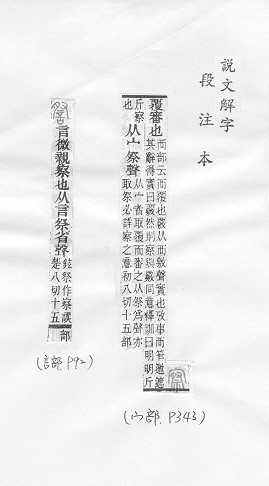 說文解字
段注本
覆審也 襾部云襾覆也覈从襾敫聲實也攷事襾笮邀遮其辭得實曰覈然則察與覈同意釋訓曰明明斤
斤察也 从宀祭聲 从宀者取覆而審之从祭爲聲亦取祭必詳察之意初八切十五部
察
(宀部. P343)
詧 言微親察也从言祭省聲 鉉祭作察誤楚八切十五部
(言部. P92)